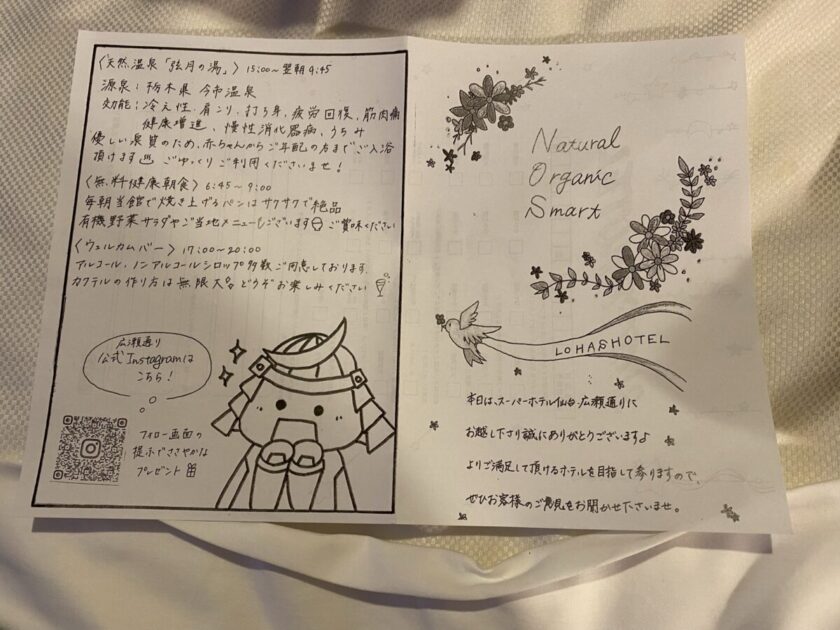 〈天然温泉「弦月の湯」〉 15:00~翌朝9:45
源泉:栃木県 今市温泉
効能:冷え性、肩こり、打ち身、疲労回復、筋肉痛
健康増進、慢性消化器病、うちみ
優しい泉質のため、赤ちゃんからご年配の方までご入浴
頂けます♨ ごゆっくりご利用くださいませ!
〈無料健康朝食〉6:45~9:00
毎朝当館で焼き上げるパンはサクサクで絶品
有機野菜サラダやご当地メニューもございます ご賞味ください
〈ウェルカムバー〉17:00~20:00
アルコール、ノンアルコールシロップ多数ご用意しております。
カクテルの作り方は無限大 どうぞお楽しみください
広瀬通り
公式Instagramは
こちら!
フォロー画面の
提示でささやかな
プレゼント
Natural
Organic
Smart
LOHAS HOTEL
本日は、スーパーホテル仙台・広瀬通りに
お越し下さり誠にありがとうございますよ
よりご満足して頂けるホテルを目指して参りますので、
ぜひお客様のご意見をお聞かせくださいませ。